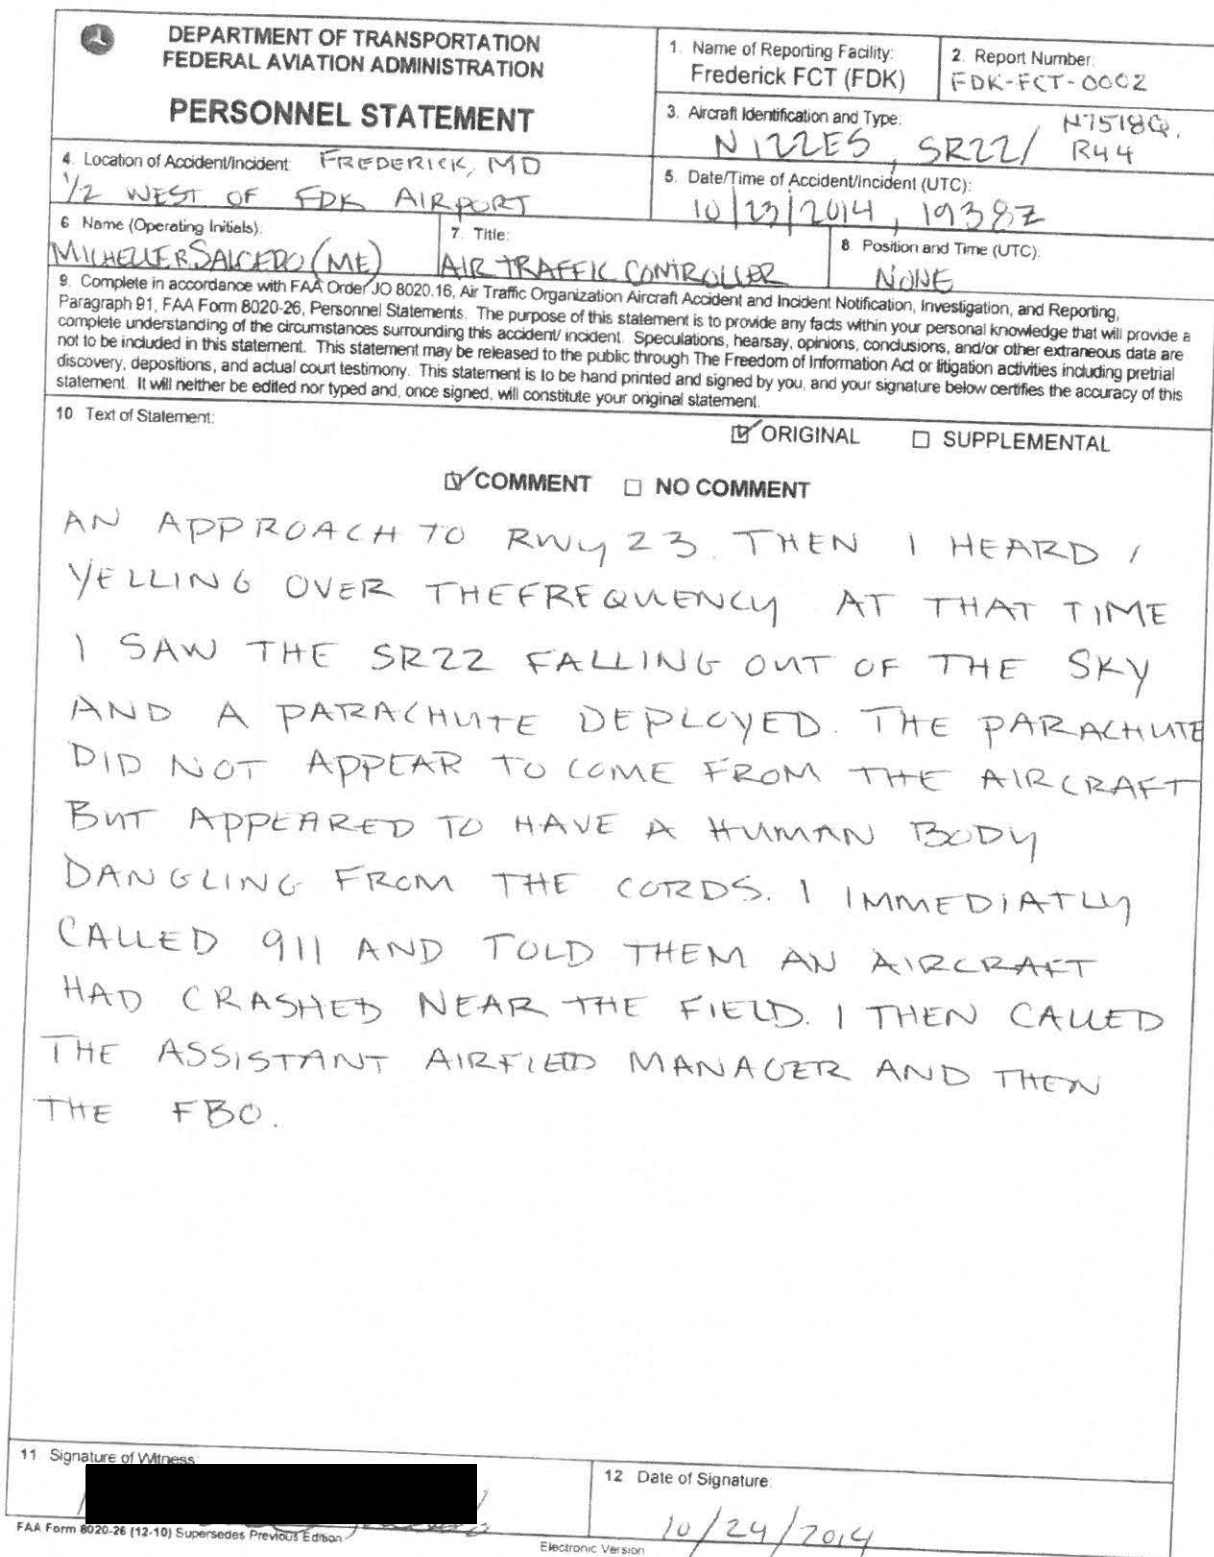 DEPARTMENT OF TRANSPORTATION
FEDERAL AVIATION ADMINISTRATION
PERSONNEL STATEMENT
1. Name of Reporting Facility:
Frederick FCT (FDK)
2. Report Number:
FDK-FCT-0002
3. Aircraft Identification and Type:
N122ES, SR22/ N7518Q, R44
4. Location of Accident/Incident: FREDERICK, MD
1/2 WEST OF FDK AIRPORT
5. Date/Time of Accident/Incident (UTC):
10/23/2014, 1938Z
6 Name (Operating Initials):
MICHELLE R SALCEDO (ME)
7. Title:
AIR TRAFFIC CONTROLLER
8 Position and Time (UTC):
NONE
9. Complete in accordance with FAA Order JO 8020.16, Air Traffic Organization Aircraft Accident and Incident Notification, Investigation, and Reporting,
Paragraph 91, FAA Form 8020-26, Personnel Statements. The purpose of this statement is to provide any facts within your personal knowledge that will provide a
complete understanding of the circumstances surrounding this accident/ incident. Speculations, hearsay, opinions, conclusions, and/or other extraneous data are
not to be included in this statement. This statement may be released to the public through The Freedom of Information Act or litigation activities including pretrial
discovery, depositions, and actual court testimony. This statement is to be hand printed and signed by you, and your signature below certifies the accuracy of this
statement. It will neither be edited nor typed and, once signed, will constitute your original statement.
10. Text of Statement:
ORIGINAL SUPPLEMENTAL
COMMENT NO COMMENT
AN APPROACH TO RWY 23. THEN I HEARD
YELLING OVER THEFREQUENCY AT THAT TIME
I SAW THE SR22 FALLING OUT OF THE SKY
AND A PARACHUTE DEPLOYED. THE PARACHUTE
DID NOT APPEAR TO COME FROM THE AIRCRAFT
BUT APPEARED TO HAVE A HUMAN BODY
DANGLING FROM THE CORDS. I IMMEDIATLY
CALLED 911 AND TOLD THEM AN AIRCRAFT
HAD CRASHED NEAR THE FIELD. I THEN CALLED
THE ASSISTANT AIRFIELD MANAGER AND THEN
THE FBO.
11. Signature of Witness:
12 Date of Signature:
10/24/2014
FAA Form 8020-26 (12-10) Supersedes Previous Edition
Electronic Version